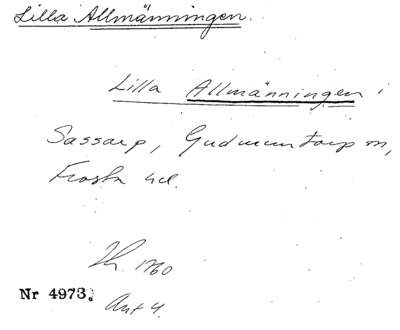 Lilla Allmänningen.
Lilla Allmänningen i
Sassarp, Gudmuntorp sn,
Frosta hd.
1760
Nr 4973.
Ant 4.